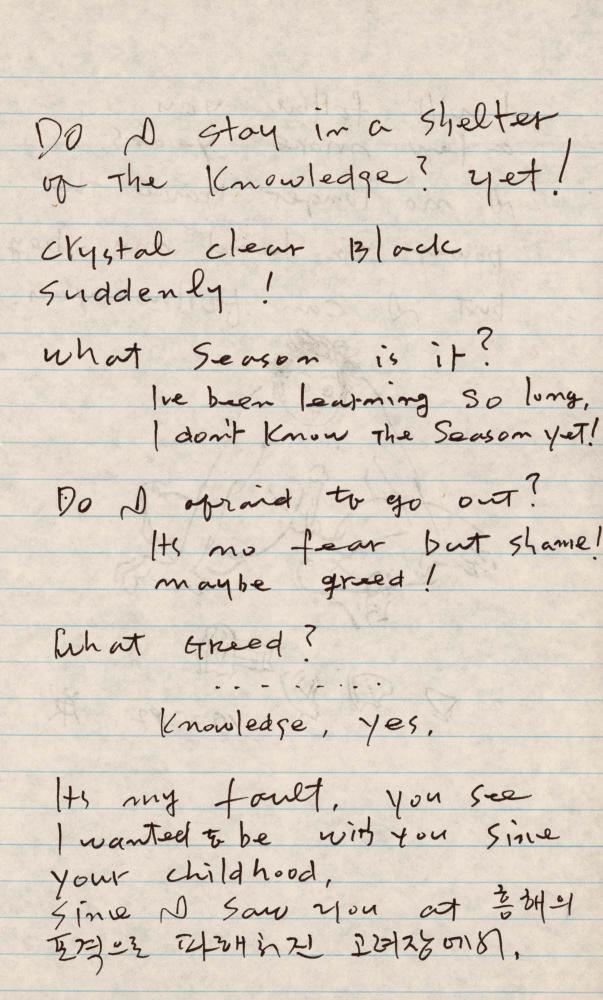 Do I stay in a shelter
of The Knowledge? yet!
crystal clear Black
suddenly!
what Season is it?
Ive been learning so long,
I don't know The Season yet!
Do I afraid to go out?
Its no fear but shame!
maybe greed!
What Greed?
.........
Knowledge, yes.
Its my fault, you see
I wanted to be with you since
your childhood,
since I saw you at 흥해의
포격으로 파헤쳐진 고려장에서.